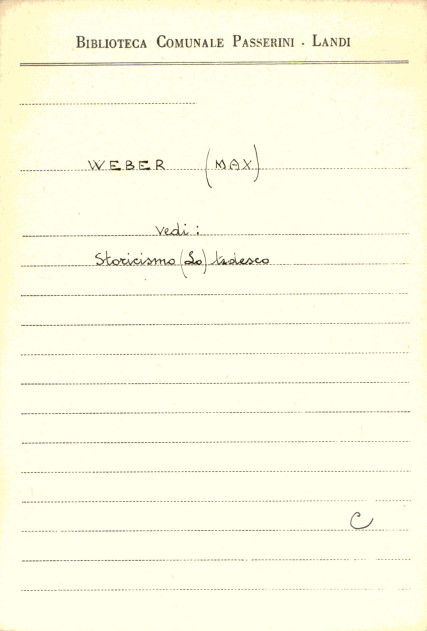 BIBLIOTECA COMUNALE PASSERINI - LANDI
WEBER (MAX)
Vedi:
Storicismo (Lo) tedesco
C